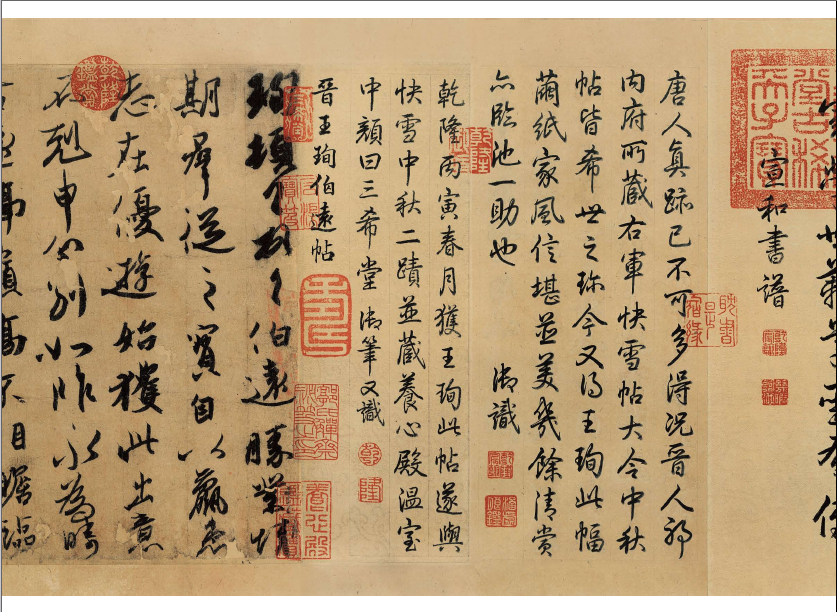 堂古稀
天子寶
宣和書譜
唐人真跡已不可多得況晉人耶
內府所藏右軍快雪帖大令中秋
帖皆希世之珍今又得王珣此幅
繭紙家風信堪並美幾餘清賞
亦臨池一助也 御識
乾隆丙寅春月獲王珣此帖遂與
快雪中秋二蹟並藏養心殿溫室
中顏曰三希堂 御筆又識
乾
隆
晉王珣伯遠帖
珣頓首頓首伯遠勝業情
期群從之寶自以羸患
志在優遊始獲此出意
不剋申分別如昨永為疇
古遠隔嶺嶠不相瞻臨
乾隆鑑賞